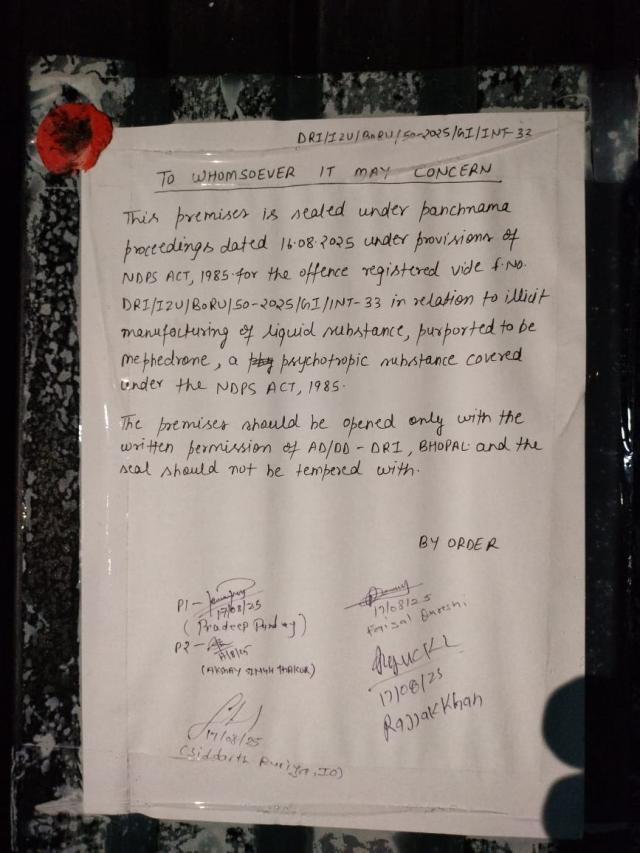 DRI/IZU/BORU/50-2025/GI/INT-32
TO WHOMSOEVER IT MAY CONCERN
This premises is sealed under panchnama
proceedings dated 16.08.2025 under provisions of
NDPS ACT, 1985 for the offence registered vide f.No.
DRI/IZU/BORU/50-2025/GI/INT-33 in relation to illicit
manufacturing of liquid substance, purported to be
mephedrone, a psychotropic substance covered
under the NDPS ACT, 1985.
The premises should be opened only with the
written permission of AD/DD - DRI, BHOPAL and the
seal should not be tempered with.
BY ORDER
P1 -
17/08/25
(Pradeep Panday)
P2 -
(AKSHAY SINGH THAKUR)
17/08/25
(Siddarth , IO)
17/08/25
Faisal Qureshi
17/08/25
Rajjak Khan